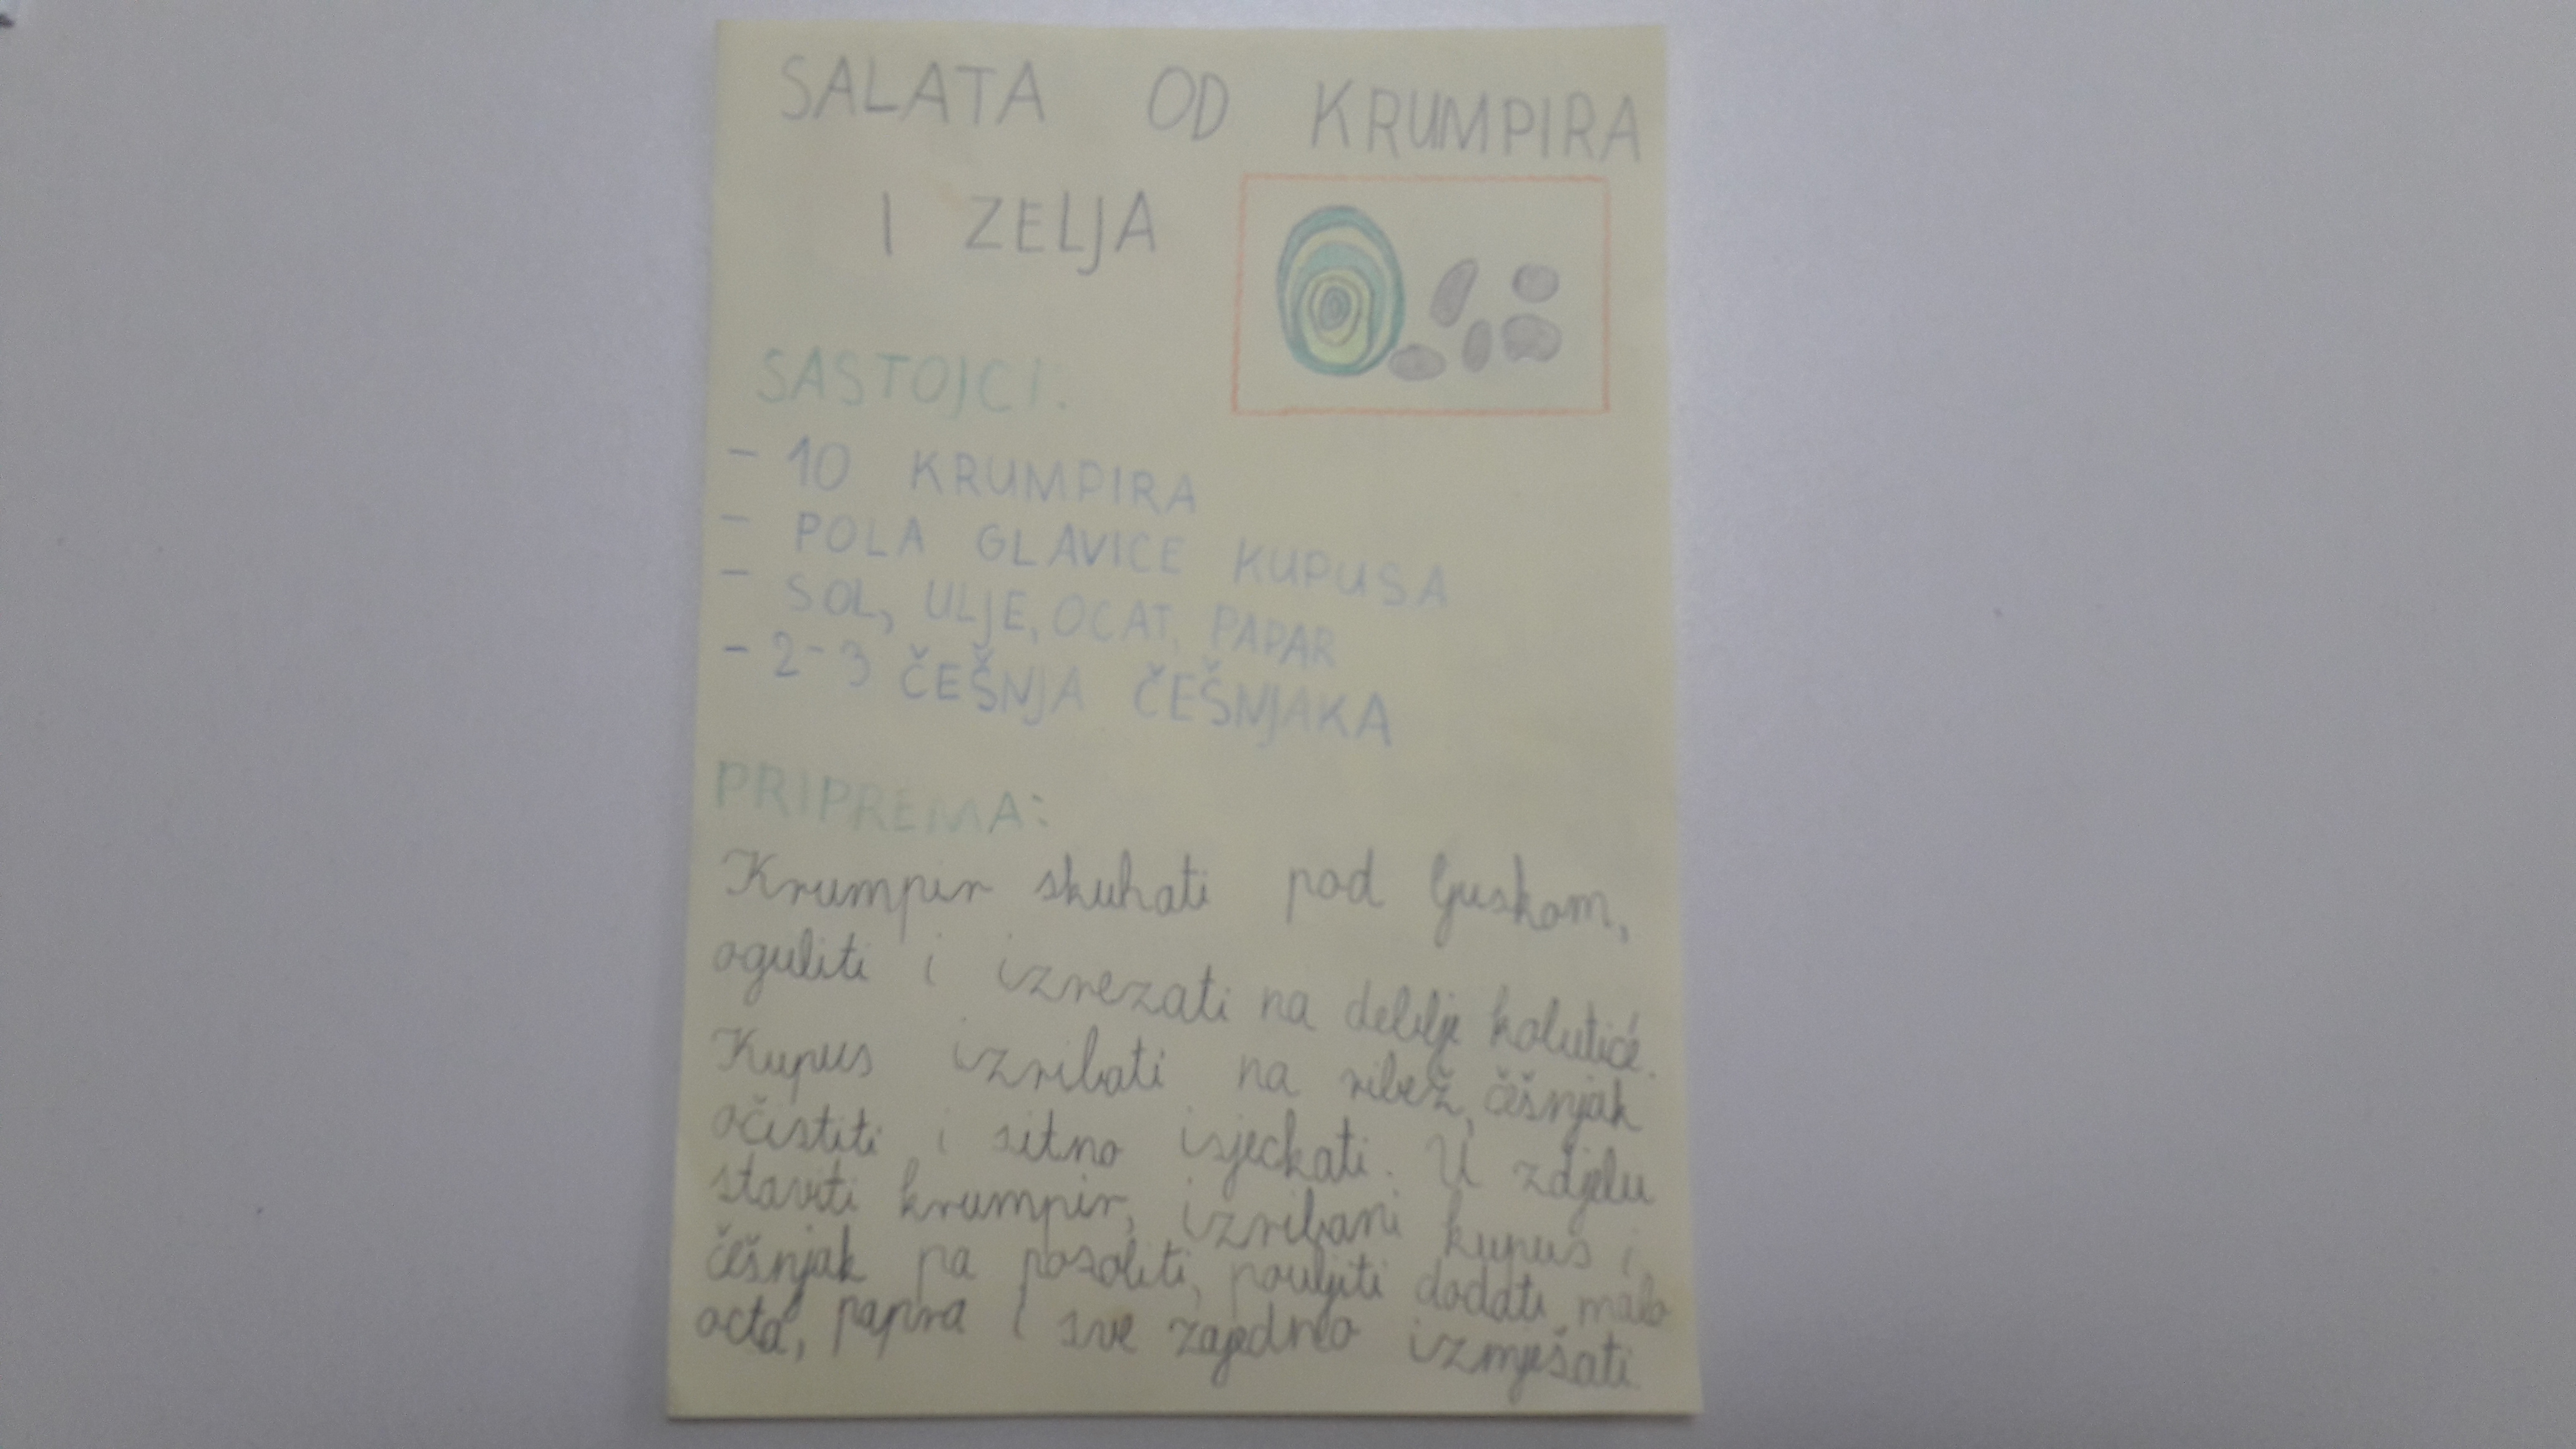 SALATA OD KRUMPIRA
I ZELJA
SASTOJCI:
- 10 KRUMPIRA
- POLA GLAVICE KUPUSA
- SOL, ULJE, OCAT, PAPAR
- 2-3 ČEŠNJA ČEŠNJAKA
PRIPREMA:
Krumpir skuhati pod ljuskom,
oguliti i izrezati na deblje kolutiće.
Kupus izribati na ribež, češnjak
očistiti i sitno isjeckati. U zdjelu
staviti krumpir, izribani kupus i
češnjak pa posoliti, pouljiti dodati malo
octa, papra i sve zajedno izmješati.